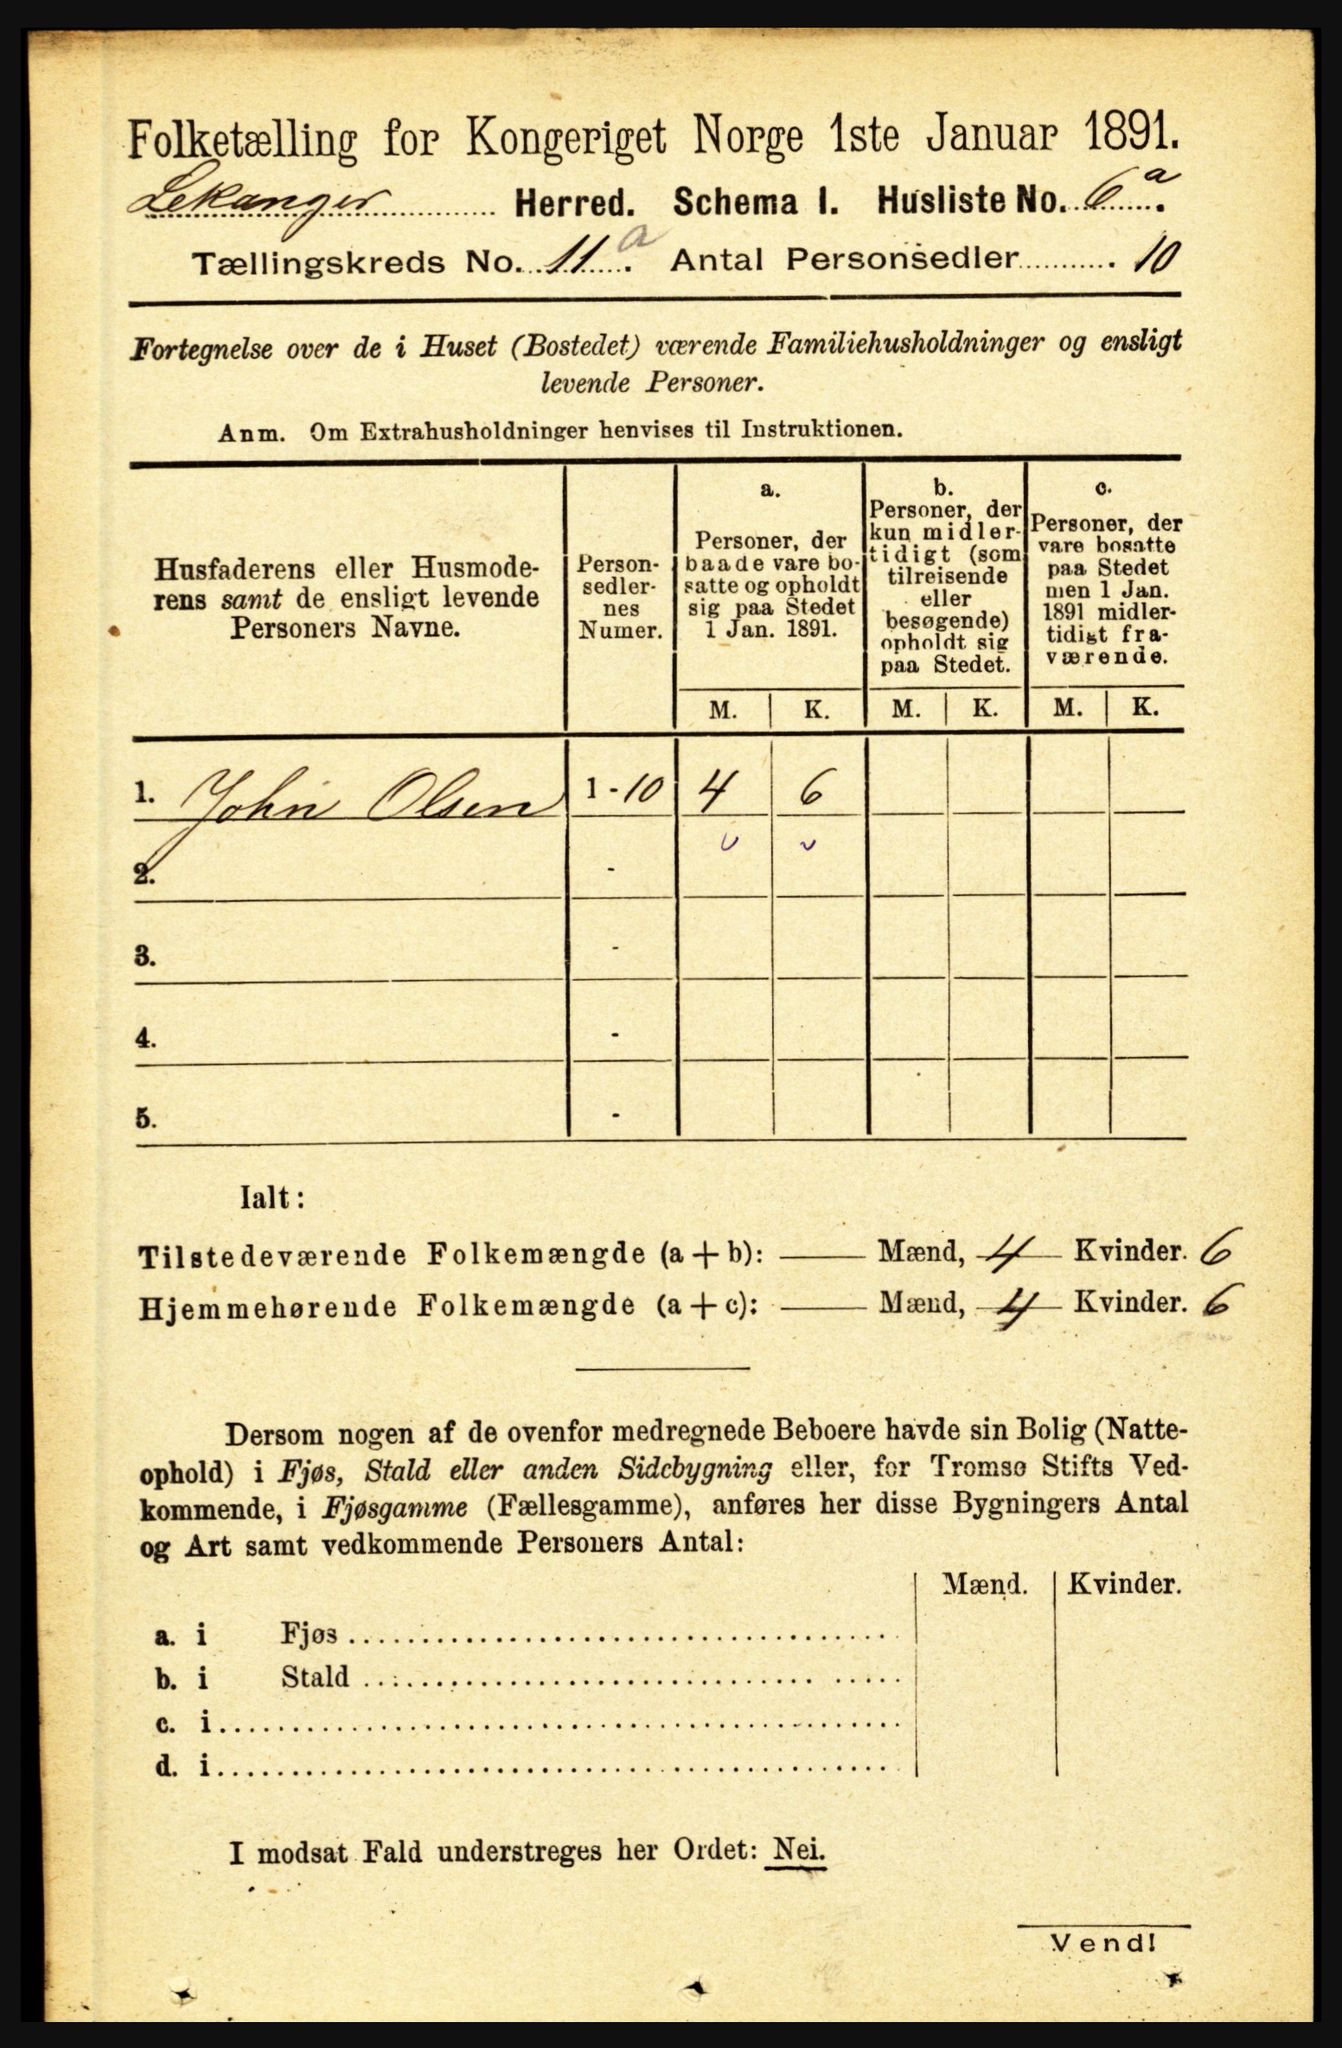 Folketælling for Kongeriget Norge 1ste Januar 1891.
Lekanger Herred. Schema I. Husliste No. 6 a.
Tællingskreds No. 11 a. Antal Personsedler 10
Fortegnelse over de i Huset (Bostedet) værende Familiehusholdninger og ensligt
levende Personer.
Anm. Om Extrahusholdninger henvises til Instruktionen.
Husfaderens eller Husmode-
rens samt de ensligt levende
Personers Navne.
Person-
sedler-
nes
Numer.
a.
Personer, der
baade vare bo-
satte og opholdt
sig paa Stedet
1 Jan. 1891.
b.
Personer, der
kun midler-
tidigt (som
tilreisende
eller
besøgende)
opholdt sig
paa Stedet.
c.
Personer, der
vare bosatte
paa Stedet
men 1 Jan.
1891 midler-
tidigt fra-
værende.
M. K. M. K. M. K.
1. John Olsen 1-10 4 6
2. -
3. -
4. -
5. -
Ialt:
Tilstedeværende Folkemængde (a + b): Mænd, 4 Kvinder. 6
Hjemmehørende Folkemængde (a + c): Mænd, 4 Kvinder. 6
Dersom nogen af de ovenfor medregnede Beboere havde sin Bolig (Natte-
ophold) i Fjøs, Stald eller anden Sidebygning eller, for Tromsø Stifts Ved-
kommende, i Fjøsgamme (Fællesgamme), anføres her disse Bygningers Antal
og Art samt vedkommende Personers Antal:
Mænd. Kvinder.
a. i Fjøs
b. i Stald
c. i
d. i
I modsat Fald understreges her Ordet: Nei.
Vend!